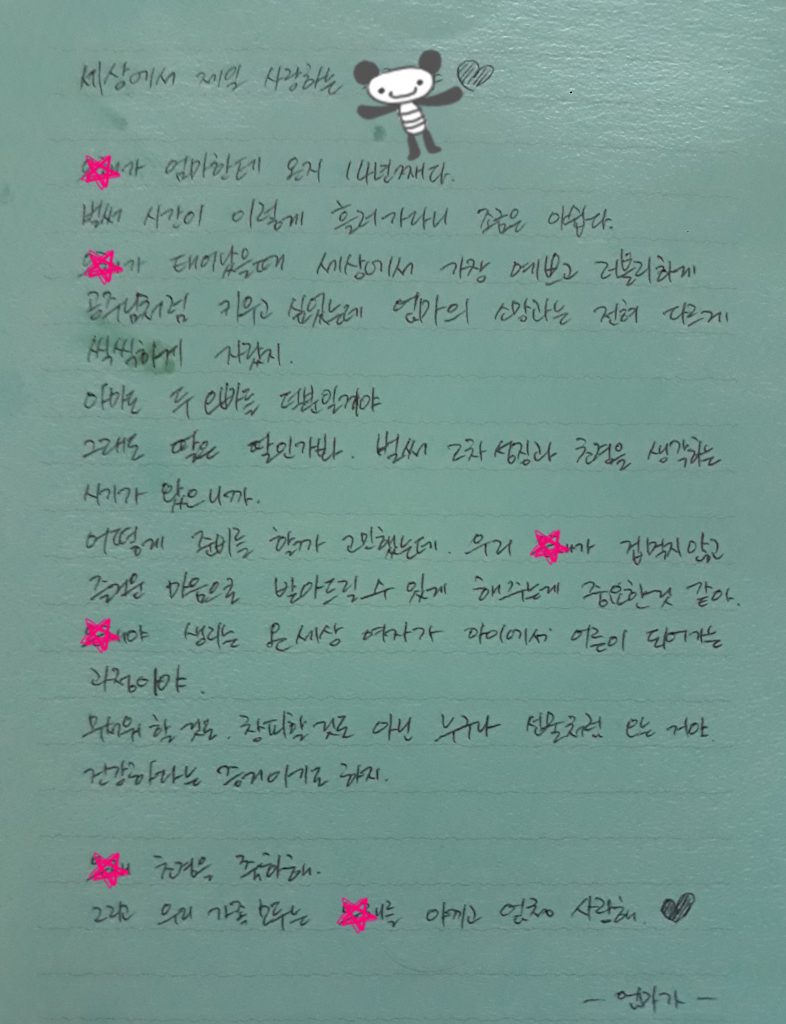 세상에서 제일 사랑하는
가 엄마한테 온지 14년째다.
벌써 시간이 이렇게 흘러가다니 조금은 아쉽다.
가 태어났을때 세상에서 가장 예쁘고 러블리하게
공주님처럼 키우고 싶었는데 엄마의 소망과는 전혀 다르게
씩씩하게 자랐지.
아마도 두 오빠들 덕분일게야
그래도 딸은 딸인가봐. 벌써 2차성징과 초경을 생각하는
시기가 왔으니까.
어떻게 준비를 할까 고민했는데. 우리 가 겁먹지않고
즐거운 마음으로 받아드릴 수 있게 해주는게 중요한것 같아.
야 생리는 온세상 여자가 아이에서 어른이 되어가는
과정이야.
무서워 할것도. 창피할것도 아닌 누구나 선물처럼 오는 거야.
건강하다는 증거이기도 하지.
초경을 축하해.
그리고 우리 가족 모두는 를 아끼고 엄청 사랑해.
- 엄마가 -